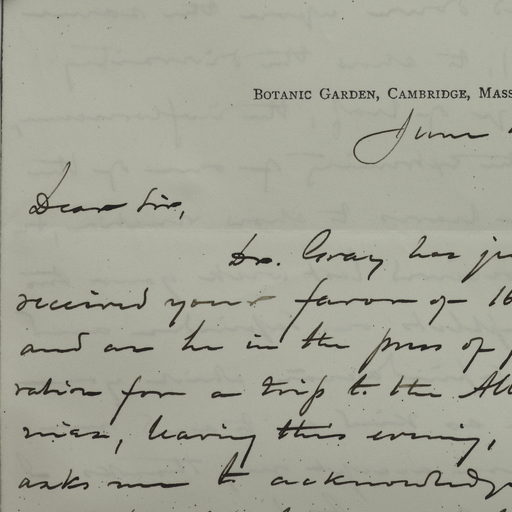 BOTANIC GARDEN, CAMBRIDGE, MASS
June
Dear Sir,
Dr. Gray has ju
received your favor of 16
and as he in the press of p
ration for a trip to the All
nies, leaving this evening,
asks me to acknowledge